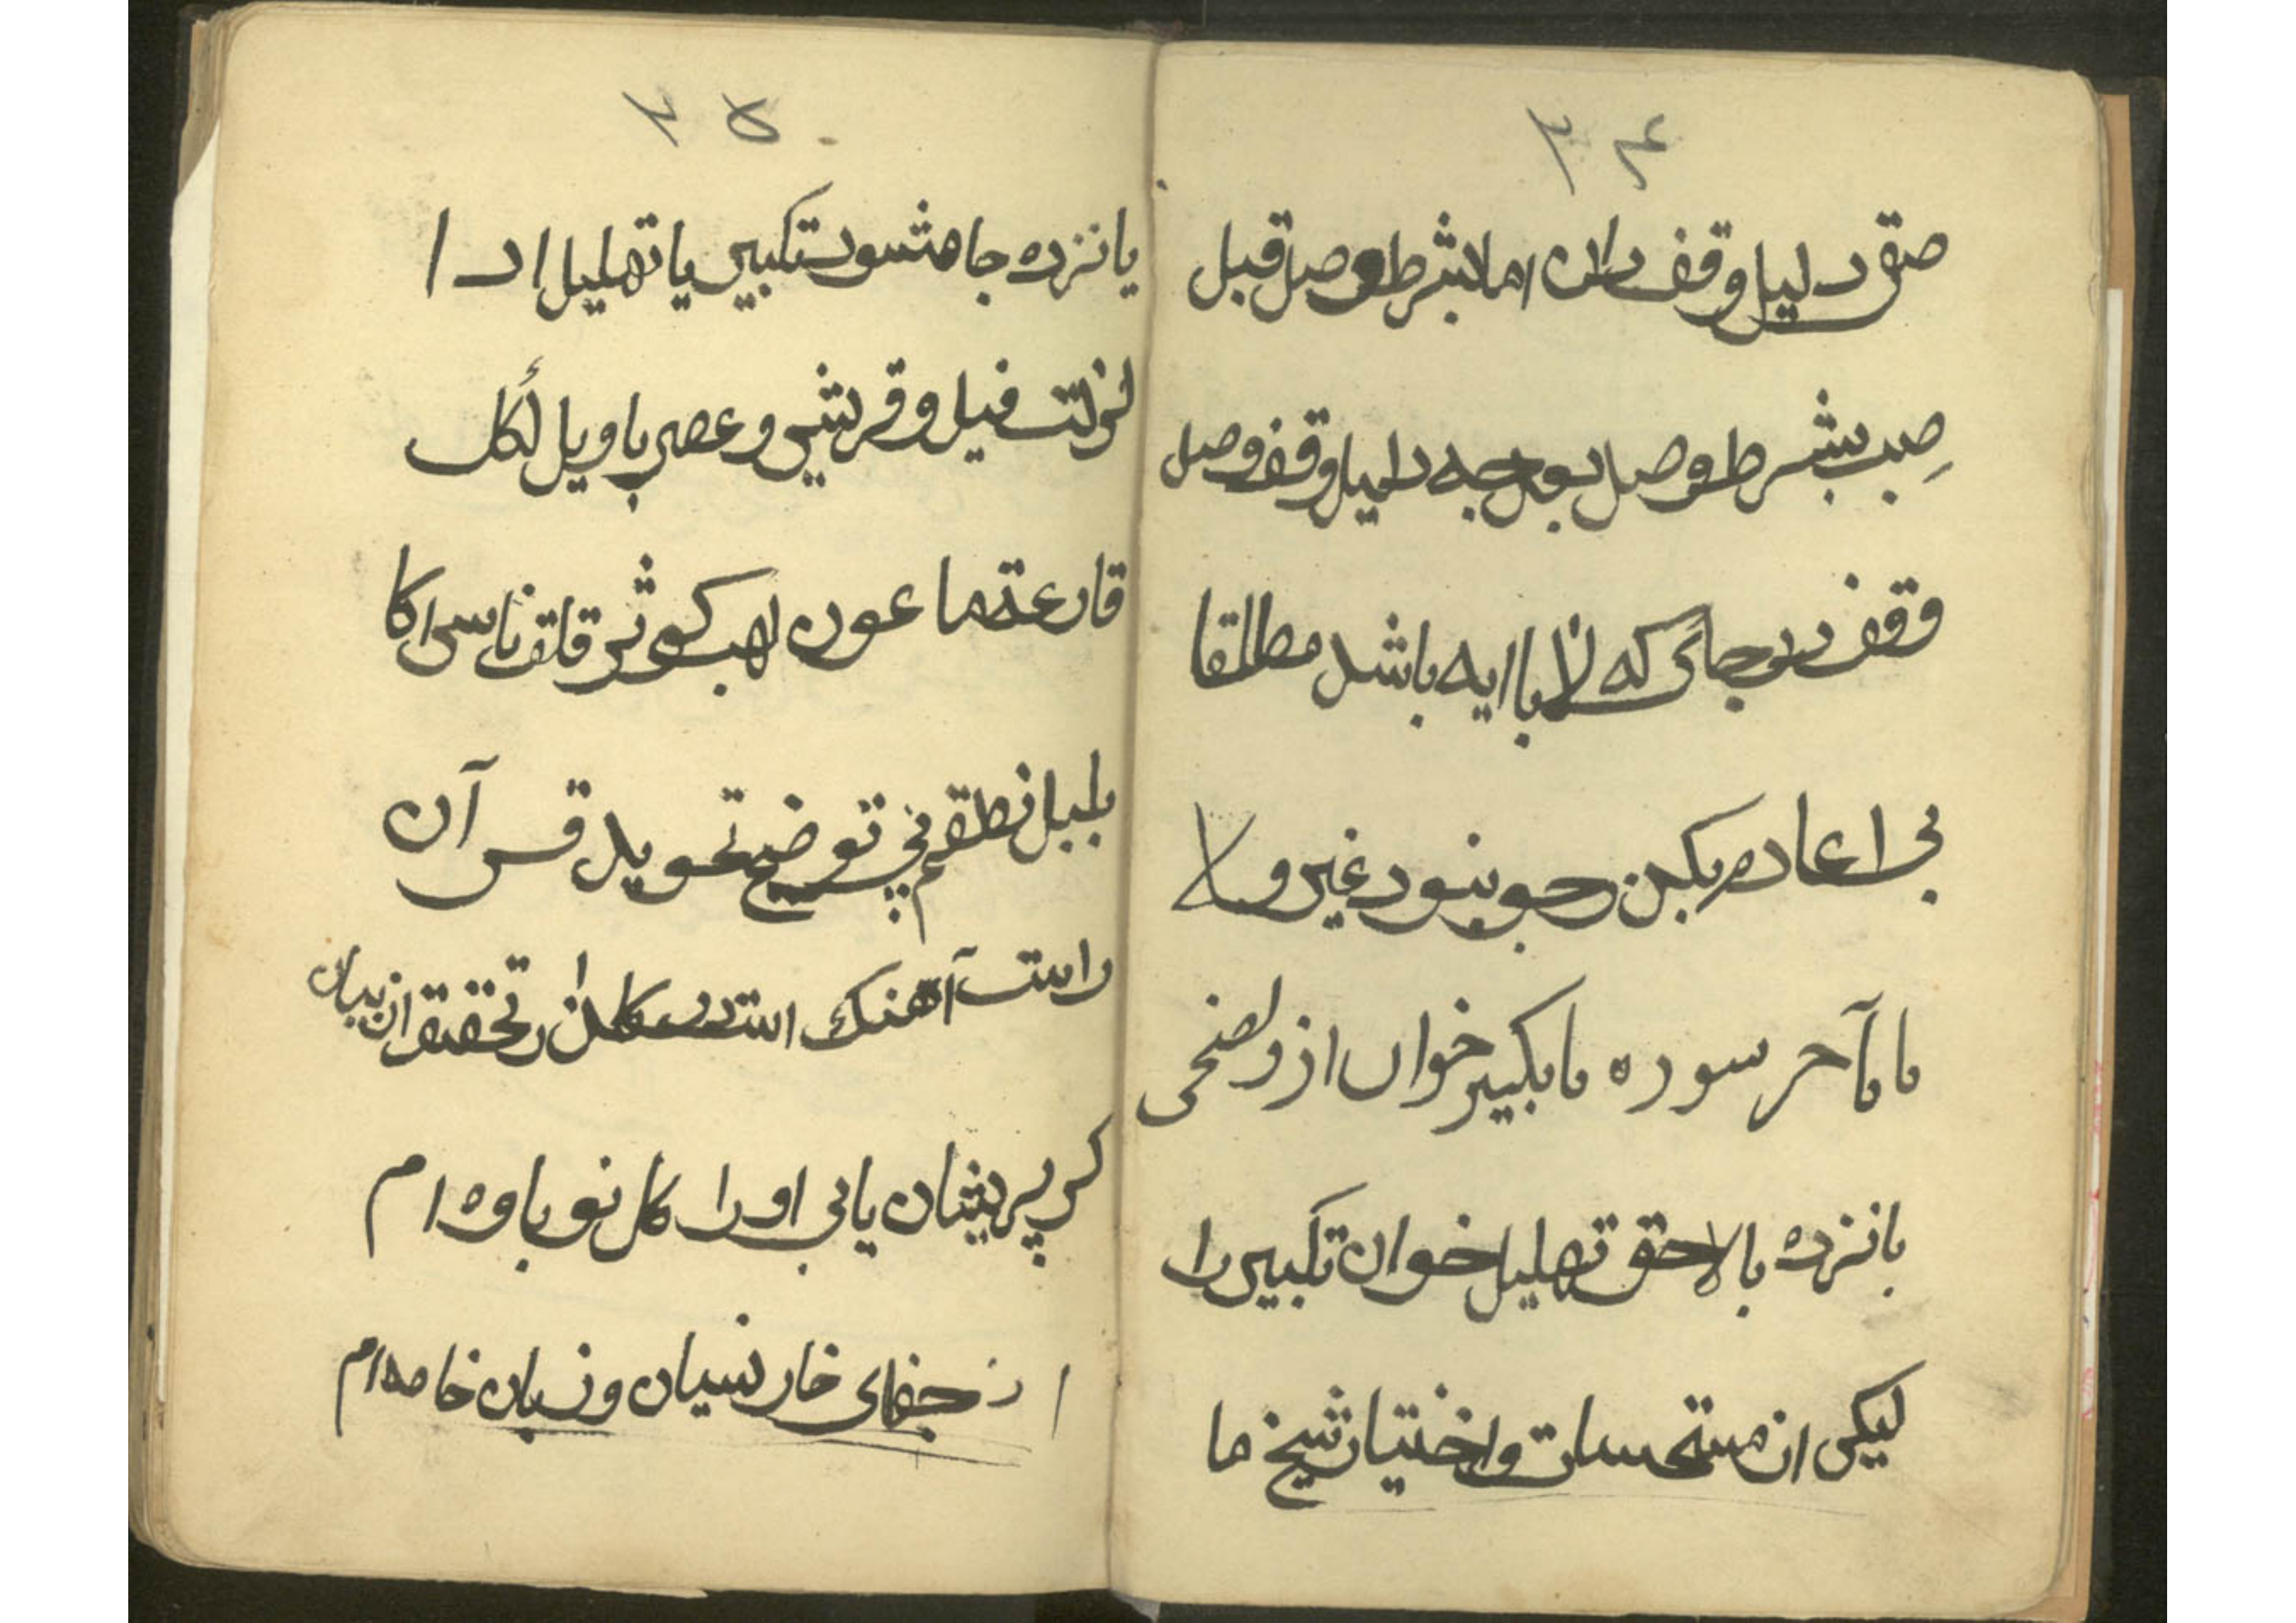 ۲۴
صق دلیل وقف دان اما بشرط وصل قبل
صب بشرط وصل بود جه دلیل وقف وصل
وقف در جائی که لا با ایه باشد مطلقا
بی اعاده بکن جو بنود غیر ولا
ما بآحر سوره ما بکبیر خوان از ولضحی
بانزده بالاحق تهلیل خوان تکبیر را
لیکی از مستحسات واختیار شیخ ما
۲۵
یانزده جا مشود تکبیر یا تهلیل ادا
فیل وقریش وعصر باویل لکل
قارعة ماعون لهب کوثر قلق ناس
بلبل نطقم پی توضیح تحوید قرآن
راست آهنک است در تحقیق ان بیان
کر پریشان یابی اورا کل نو باوه ام
از جفای خار نسیان وزبان خامه ام